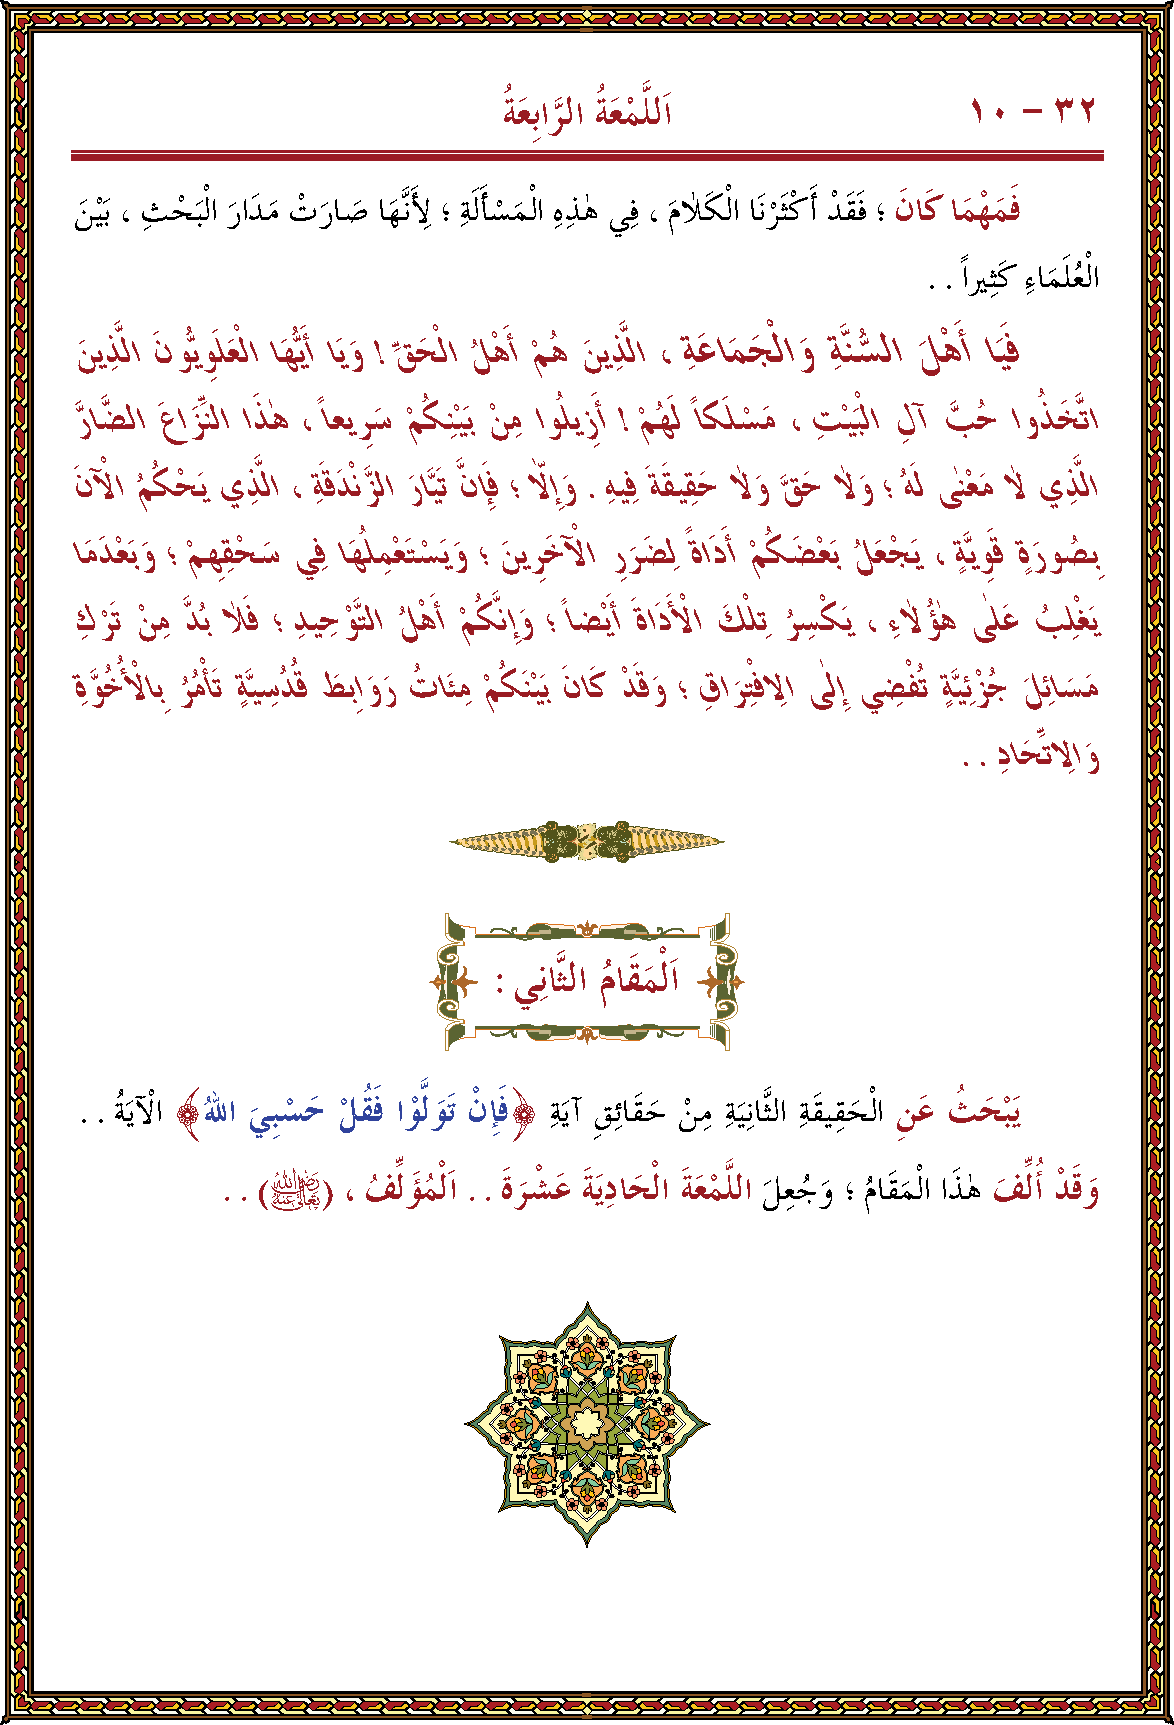 ٣٢ – ١٠
اَللَّمْعَةُ الرَّابِعَةُ
فَمَهْمَا كَانَ ؛ فَقَدْ أَكْثَرْنَا الْكَلَامَ ، فِي هٰذِهِ الْمَسْأَلَةِ ؛ لِأَنَّهَا صَارَتْ مَدَارَ الْبَحْثِ ، بَيْنَ
الْعُلَمَاءِ كَثِيراً . .
فَيَا أَهْلَ السُّنَّةِ وَالْجَمَاعَةِ ، الَّذِينَ هُمْ أَهْلُ الْحَقِّ ! وَيَا أَيُّهَا الْعَلَوِيُّونَ الَّذِينَ
اتَّخَذُوا حُبَّ آلِ الْبَيْتِ ، مَسْلَكاً لَهُمْ ! أَزِيلُوا مِنْ بَيْنِكُمْ سَرِيعاً ، هٰذَا النِّزَاعَ الضَّارَّ
الَّذِي لَا مَعْنٰى لَهُ ؛ وَلَا حَقَّ وَلَا حَقِيقَةَ فِيهِ . وَإِلَّا ؛ فَإِنَّ تَيَّارَ الزَّنْدَقَةِ ، الَّذِي يَحْكُمُ الْآنَ
بِصُورَةٍ قَوِيَّةٍ ، يَجْعَلُ بَعْضَكُمْ أَدَاةً لِضَرَرِ الْآخَرِينَ ؛ وَيَسْتَعْمِلُهَا فِي سَحْقِهِمْ ؛ وَبَعْدَمَا
يَغْلِبُ عَلٰى هٰؤُلَاءِ ، يَكْسِرُ تِلْكَ الْأَدَاةَ أَيْضاً ؛ وَإِنَّكُمْ أَهْلُ التَّوْحِيدِ ؛ فَلَا بُدَّ مِنْ تَرْكِ
مَسَائِلَ جُزْئِيَّةٍ تُفْضِي إِلٰى الِافْتِرَاقِ ؛ وَقَدْ كَانَ بَيْنَكُمْ مِئَاتُ رَوَابِطَ قُدُسِيَّةٍ تَأْمُرُ بِالْأُخُوَّةِ
وَالِاتِّحَادِ . .
اَلْمَقَامُ الثَّانِي :
يَبْحَثُ عَنِ الْحَقِيقَةِ الثَّانِيَةِ مِنْ حَقَائِقِ آيَةِ ﴿فَإِنْ تَوَلَّوْا فَقُلْ حَسْبِيَ اللهُ﴾ الْآيَةُ . .
وَقَدْ أُلِّفَ هٰذَا الْمَقَامُ ؛ وَجُعِلَ اللَّمْعَةَ الْحَادِيَةَ عَشْرَةَ . . اَلْمُؤَلِّفُ ، (رَضِيَ اللهُ تَعَالَى عَنْهُ) . .